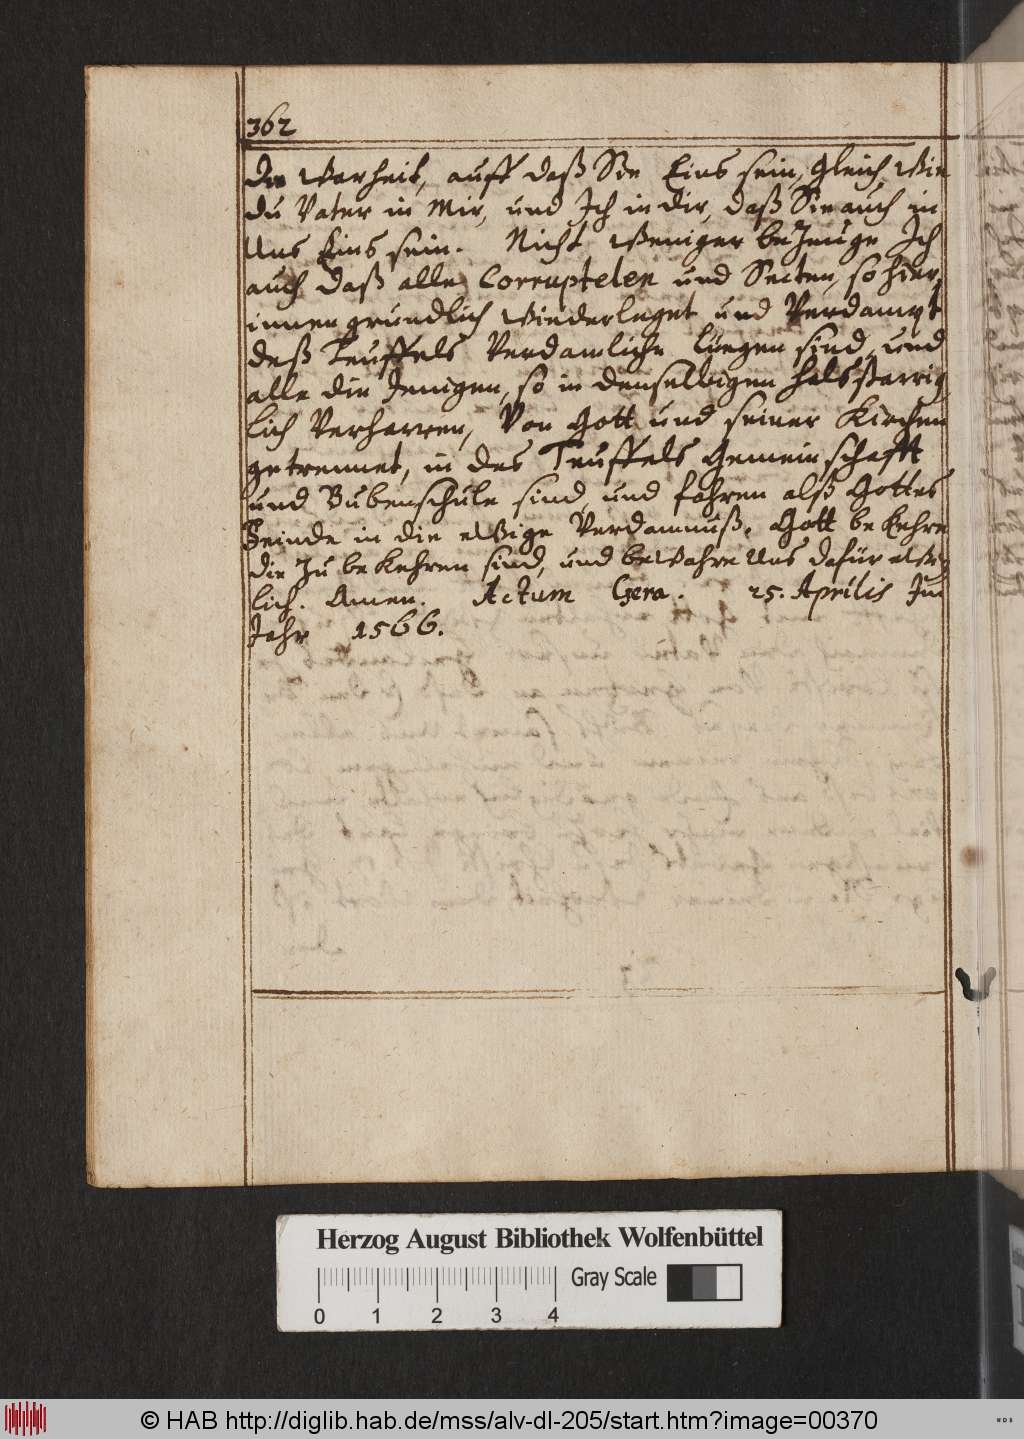 362
die Warheit, auff daß Sie Eins sein, gleich Wie
du Vater in Mir, und Ich in dir, daß Sie auch in
Uns Eins sein. Nicht Weniger beZeuge Ich
auch daß alle Corruptelen und Secten, so hier
innen gründlich Wiederleget und Verdampt
deß Teuffels Verdamliche Lüegen sind, und
alle die Jenigen, so in denselbigen Halsstarrig
lich Verharren, Von Gott und seiner Kirchen
getrennet, in des Teuffels Gemeinschafft
und Bubenschule sind, und fahren alß Gottes
Feinde in die eWige Verdamnuß, Gott bekehre
die Zu bekehren sind, und beWahre Uns dafür eWig
lich. Amen. Actum Gera. 25. Aprilis Im
Jahr 1566.
Herzog August Bibliothek Wolfenbüttel
Gray Scale
0 1 2 3 4
© HAB http://diglib.hab.de/mss/alv-dl-205/start.htm?image=00370